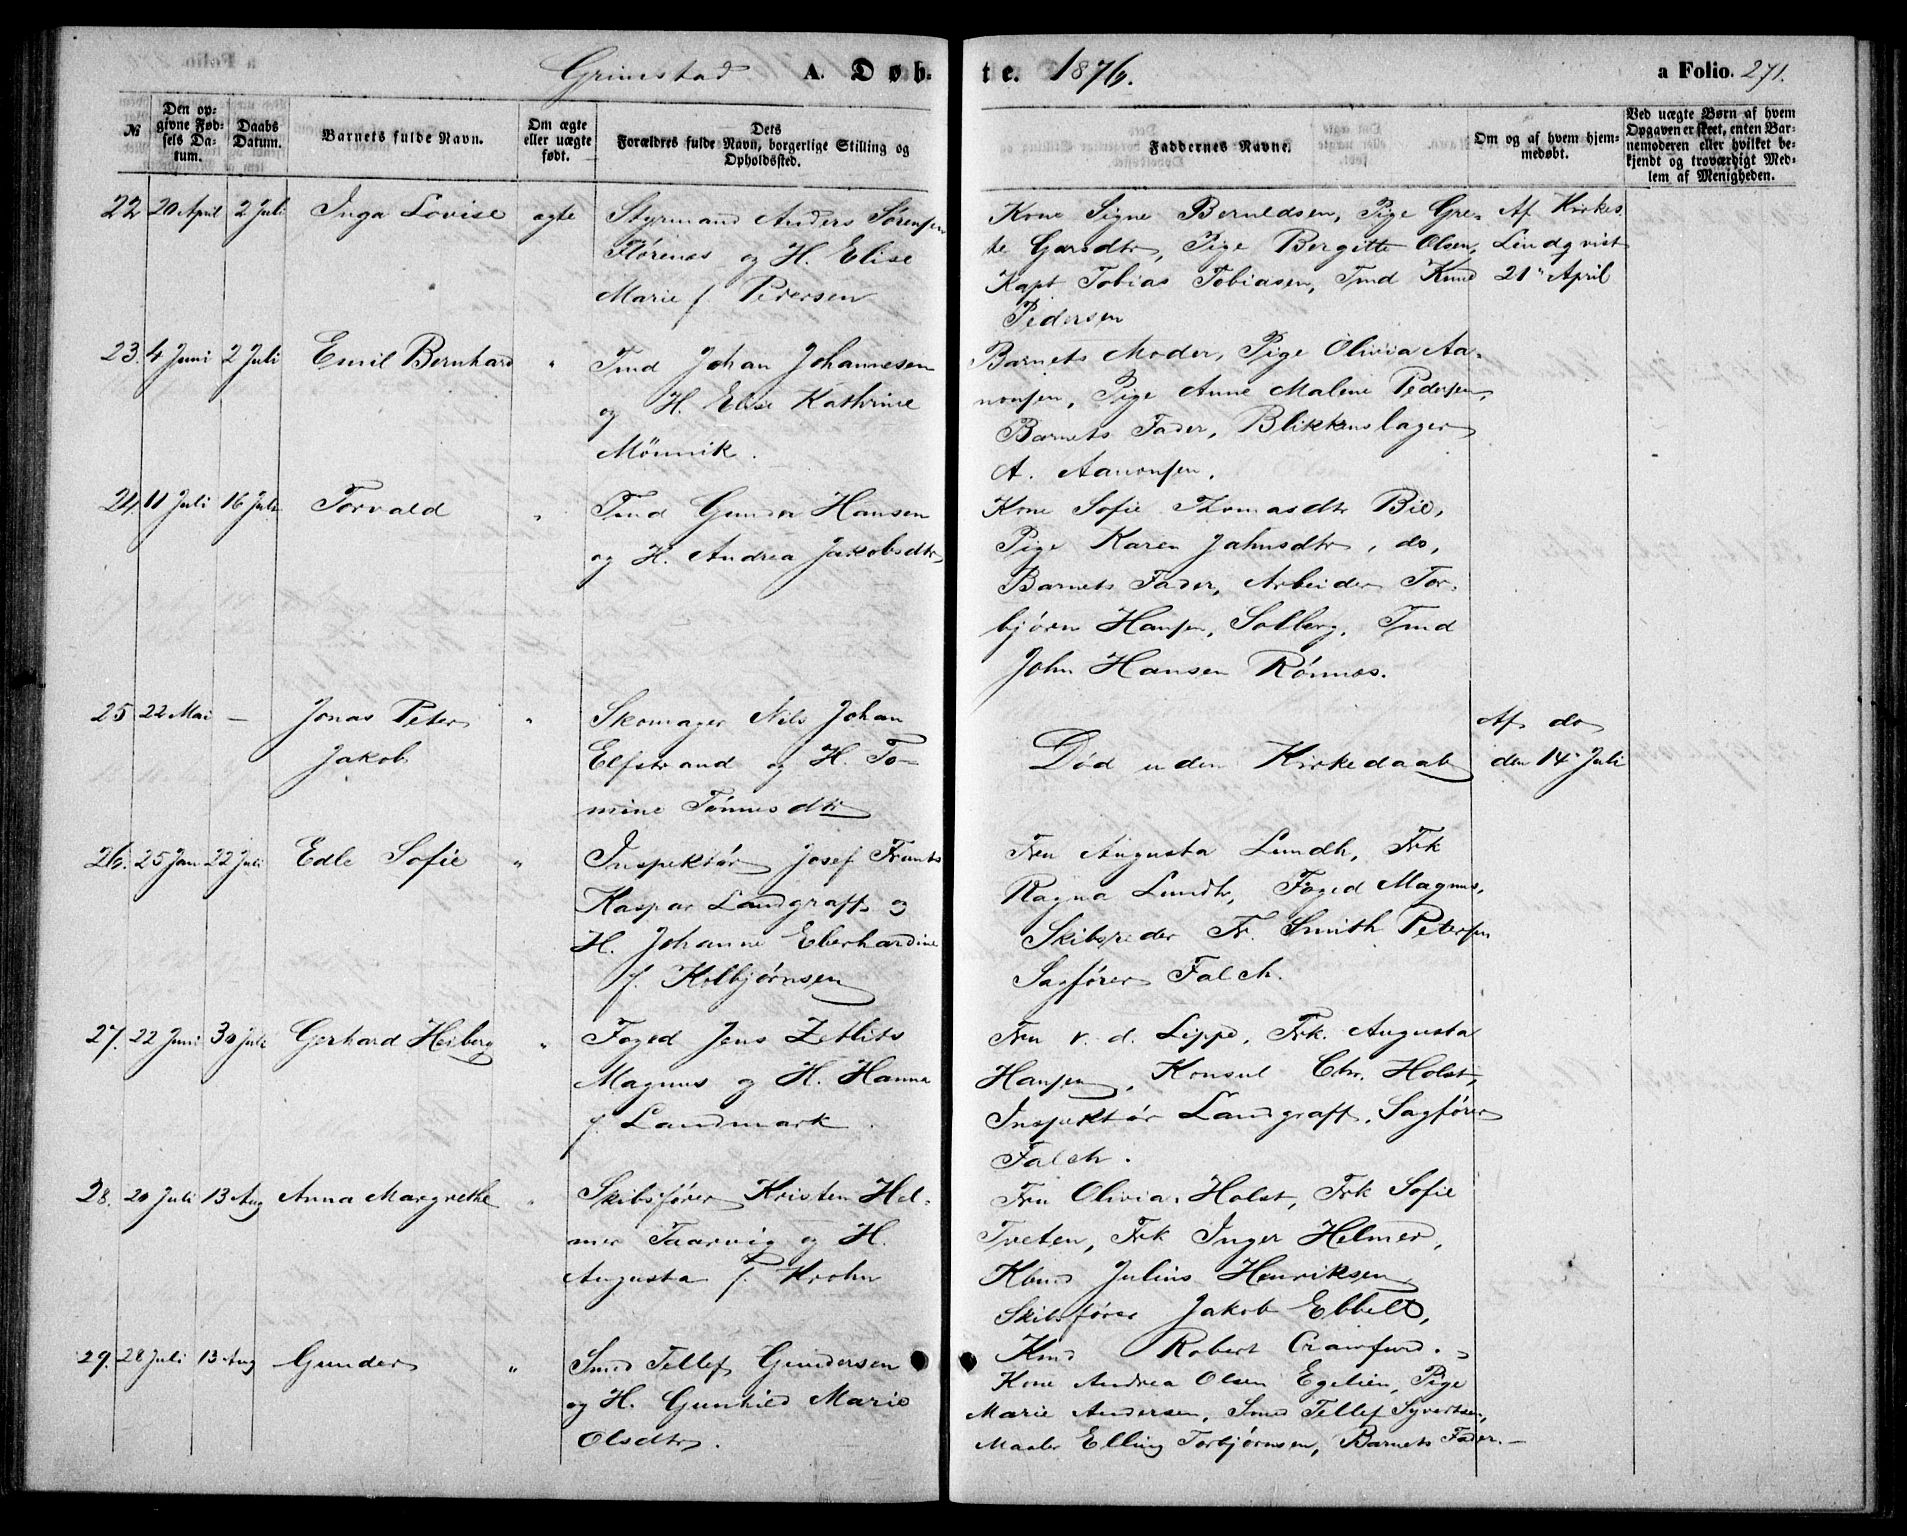 Grimstad A. Døbte. 1876. a Folio. 271.
№
Den opgivne Fødsels Datum.
Daabs Datum.
Barnets fulde Navn.
Om ægte eller uægte født.
Dets Forældres fulde Navn, borgerlige Stilling og Opholdssted.
Faddernes Navne.
Om og af hvem hjemmedøbt.
Ved uægte Børn af hvem Opgaven er skeet, enten Barnemoderen eller hvilket bekjendt og troværdigt Medlem af Menigheden.
22 20 April 2 Juli Inga Lovise ægte
Styrmand Anders Sørensen
Flørenes og H. Elise
Marie f Pedersen
Kone Signe Berntdsen, Pige Gre-
te Garsdtr, Pige Bergitte Olsen,
Kapt Tobias Tobiasen, Tmd Knud
Pedersen
Af Kirkes.
Lindqvist
21 April
23. 4 Juni 2 Juli Emil Bernhard "
Tmd Johan Johannesen
og H. Elise Kathrine
Mönnik.
Barnets Moder, Pige Olivia Aa-
nonsen, Pige Anne Malene Pedersen,
Barnets Fader, Blikkenslager
A. Aanonsen.
24. 11 Juli 16 Juli Torvald "
Tmd Gunder Hansen
og H. Andrea Jakobsdtr
Kone Sofie Thomasdtr Bie,
Pige Karen Jahnsdtr, do,
Barnets Fader, Arbeider Tor-
bjørn Hansen, Solberg, Tmd
John Hansen Rönnes.
25 22 Mai — Jonas Peter "
Jakob
Skomager Nils Johan
Elfstrand og H. To-
mine Tönnesdtr
Död uden Kirkedaab
Af do
den 14 Juli
26. 25 Jan 22 Juli Edle Sofie "
Inspektör Josef Frants
Kaspar Landgraff og
H. Johanne Eberhardine
f. Kolbjørnsen
Fru Augusta Lundh, Frk
Ragna Lundh, Foged Magnus,
Skibsreder Fr. Smith Petersen
Sagfører Falch.
27. 22 Juni 30 Juli Gerhard Heiberg "
Foged Jens Zetlits
Magnus og H. Hanna
f. Landmark.
Fru v. d. Lippe, Frk. Augusta
Hansen, Konsul Chr. Holst,
Inspektör Landgraff, Sagfører
Falch.
28. 20 Juli 13 Aug Anna Margrethe "
Skibsfører Kristen Hel-
mer Taarvig og H.
Augusta f. Krohn
Fru Olivia Holst, Frk Sofie
Tveten, Frk Inger Helmer,
Kbmd Julius Henriksen,
Skibsfører Jakob Ebbelt,
Kmd Robert Crawfurd.
29. 28 Juli 13 Aug Gunder "
Smed Tellef Gundersen
og H. Gunhild Marie
Olsdtr.
Kone Andrea Olsen Egelien, Pige
Marie Andersen, Smed Tellef Syvertsen,
Maaler Elling Torbjørnsen, Barnets Fader.—